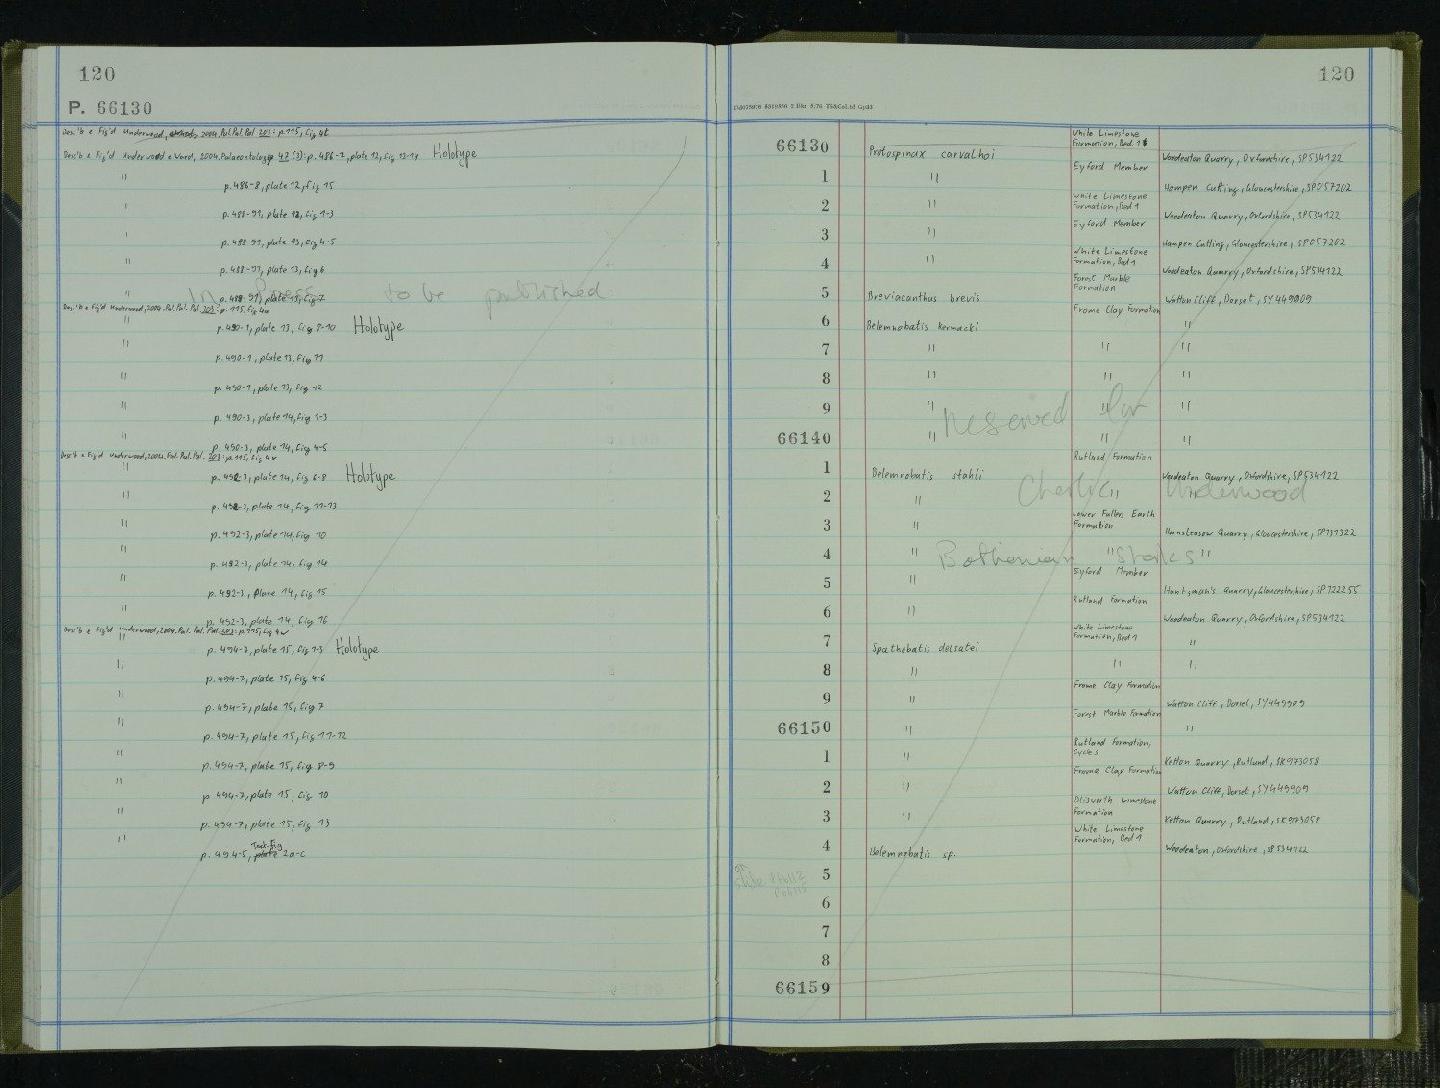 120
P. 66130
Des'b & Fig'd Underwood, 2004. Pal. Pal. Pal. 203: p.115, fig 4t
Des'b & Fig'd Underwood & Ward, 2004. Palaeontology 47 (3): p. 486-7, plate 12, fig 12-14 Holotype
" p. 486-8, plate 12, fig 15
" p. 488-91, plate 13, fig 1-3
" p. 488-91, plate 13, fig 4-5
" p. 488-91, plate 13, fig 6
" p. 488-91, plate 13, fig 7
In Press to be published
Des'b & Fig'd Underwood, 2004. Pal. Pal. Pal. 203: p. 115, fig 4u
" p. 490-1, plate 13, fig 8-10 Holotype
" p. 490-1, plate 13, fig 11
" p. 490-1, plate 13, fig 12
" p. 490-3, plate 14, fig 1-3
" p. 490-3, plate 14, fig 4-5
Des'b & Fig'd Underwood, 2004. Pal. Pal. Pal. 203: p.115, fig 4v
" p. 492-3, plate 14, fig 6-8 Holotype
" p. 492-3, plate 14, fig 11-13
" p. 492-3, plate 14, fig 10
" p. 492-3, plate 14, fig 14
" p. 492-3, plate 14, fig 15
" p. 492-3, plate 14, fig 16
Des'b & Fig'd Underwood, 2004. Pal. Pal. Pal. 203: p.115, fig 4w
" p. 494-7, plate 15, fig 1-3 Holotype
" p. 494-7, plate 15, fig 4-6
" p. 494-7, plate 15, fig 7
" p. 494-7, plate 15, fig 11-12
" p. 494-7, plate 15, fig 8-9
" p. 494-7, plate 15, fig 10
" p. 494-7, plate 15, fig 13
" p. 494-5, Text-fig 2a-c
120
66130 Protospinax carvalhoi White Limestone Formation, Bed 1 Woodeaton Quarry, Oxfordshire, SP534122
1 " Eyford Member Hampen Cutting, Gloucestershire, SP057202
2 " White Limestone Formation, Bed 1 Woodeaton Quarry, Oxfordshire, SP534122
3 " Eyford Member Hampen Cutting, Gloucestershire, SP057202
4 " White Limestone Formation, Bed 1 Woodeaton Quarry, Oxfordshire, SP534122
5 Breviacanthus brevis Forest Marble Formation Watton Cliff, Dorset, SY449909
6 Belemnobatis kermacki Frome Clay Formation "
7 " " "
8 " " "
9 " " "
Reserved for
66140 " " "
1 Belemnobatis stahli Rutland Formation Woodeaton Quarry, Oxfordshire, SP534122
2 " " "
Charlie Underwood
3 " Lower Fullers Earth Formation Quarry, Gloucestershire,
4 "
Bathonian "Sharks"
5 " Eyford Member Huntsman's Quarry, Gloucestershire,
6 " Rutland Formation Woodeaton Quarry, Oxfordshire, SP534122
7 Spathobatis delsatei White Limestone Formation, Bed 1 "
8 " " "
9 " Frome Clay Formation Watton Cliff, Dorset, SY449909
66150 " Forest Marble Formation "
1 " Rutland Formation, Ketton Quarry, Rutland, SK973058
2 " Frome Clay Formation Watton Cliff, Dorset, SY449909
3 " Blisworth Limestone Formation Ketton Quarry, Rutland, SK973058
4 Belemnobatis sp. White Limestone Formation, Bed 1 Woodeaton, Oxfordshire, SP534122
5
6
7
8
66159